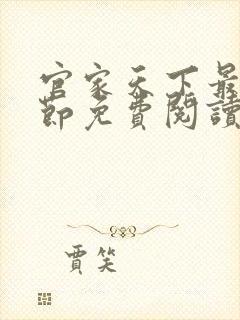 官家天下最
節免費閱讀
賈笑